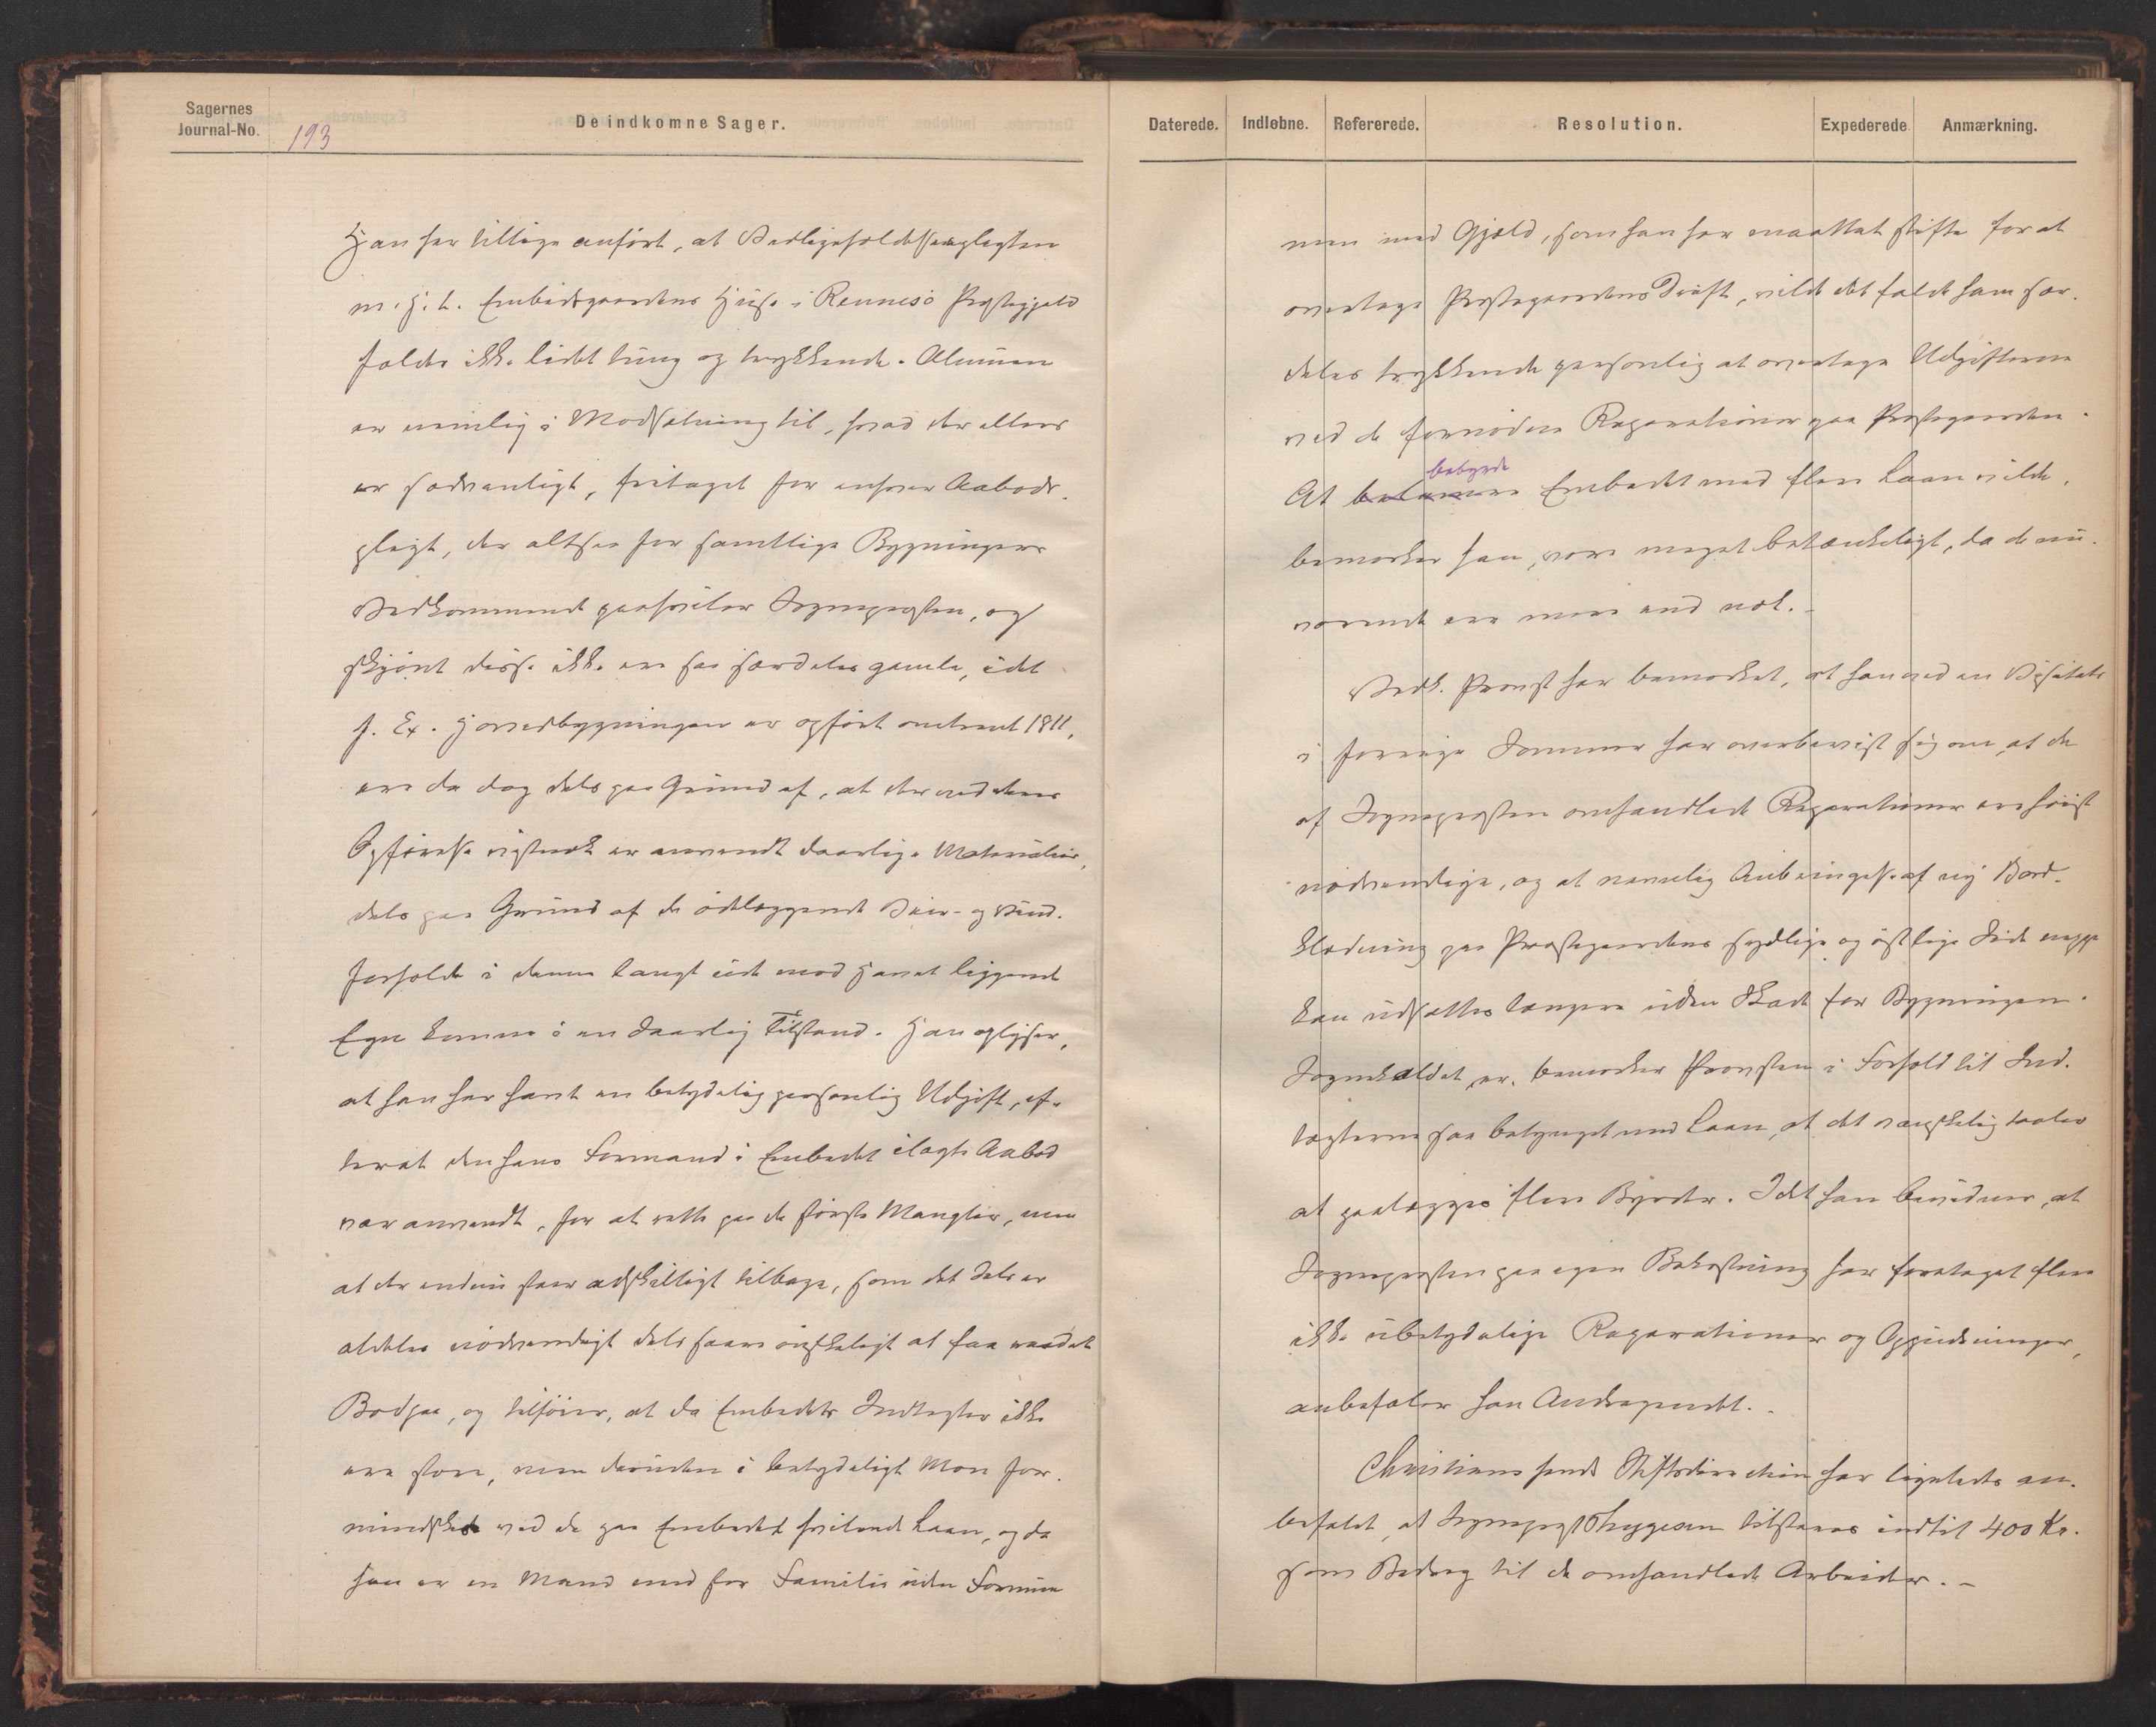 Sagernes
Journal-No.
193
De indkomne Sager.
Han har tillige anført, at Vedligeholdelsespligten
m. H. t. Embedsgaardens Huse i Rennesø Prestegjeld
falder ikke lidet tung og trykkende. Almuen
er nemlig i Modsætning til, hvad der ellers
er sædvanligt, fritaget for enhver Aabods-
pligt, der altsaa for samtlige Bygningers
Vedkommende paahviler Sognepresten, og
skjønt disse ikke ere saa særdeles gamle, idet
f. Ex. Hovedbygningen er opført omtrent 1811,
ere de dog dels paa Grund af, at der ved deres
Opførelse vistnok er anvendt daarlige Materialier,
dels paa Grund af de ødelæggende Veir- og Vind-
forholde i denne langt ude mod Havet liggende
Egn komne i en daarlig Tilstand. Han oplyser,
at han har havt en betydelig personlig Udgift, ef-
terat den hans Formand i Embedet ilagte Aabod
var anvendt, for at rette paa de største Mangler, men
at der endnu staar adskilligt tilbage, som det dels er
aldeles nødvendigt dels saare ønskeligt at faa raadet
Bod paa, og tilføier, at da Embedets Indtægter ikke
ere store, men desuden i betydeligt Mon for-
mindskede ved de paa Embedet hvilende Laan, og da
han er en Mand med stor Familie uden Formue
Daterede.
Indløbne.
Refererede.
Resolution.
Expederede
Anmærkning.
men med Gjæld, som han har maattet stifte for at
overtage Prestegaardens Drift, vilde det falde ham sær-
deles trykkende personlig at overtage Udgifterne
ved de fornødne Reparationer paa Prestegaarden.
bebyrde
At Embedet med flere Laan vilde,
bemærker han, være meget betænkeligt, da de nu-
værende ere mere end nok.-
Vedk. Provst har bemærket, at han ved en Visitats
i forrige Sommer har overbevist sig om, at de
af Sognepresten omhandlede Reparationer ere høist
nødvendige, og at navnlig Anbringelse af ny Bord-
klædning paa Prestegaardens sydlige og østlige Side neppe
kan udsættes længere uden Skade for Bygningen.
Sognekaldet er, bemærker Provsten i Forhold til Ind-
tægterne saa betynget med Laan, at det vanskelig taaler
at paalægges flere Byrder. Idet han bevidner, at
Sognepresten paa egen Bekostning har foretaget flere
ikke ubetydelige Reparationer og Oppudsninger,
anbefaler han Andragendet.-
Christianssands Stiftsdirection har ligeledes an-
befalet, at Sogneprest Thygesen tilstaaes indtil 400 Kr.
som Bidrag til de omhandlede Arbeider.-